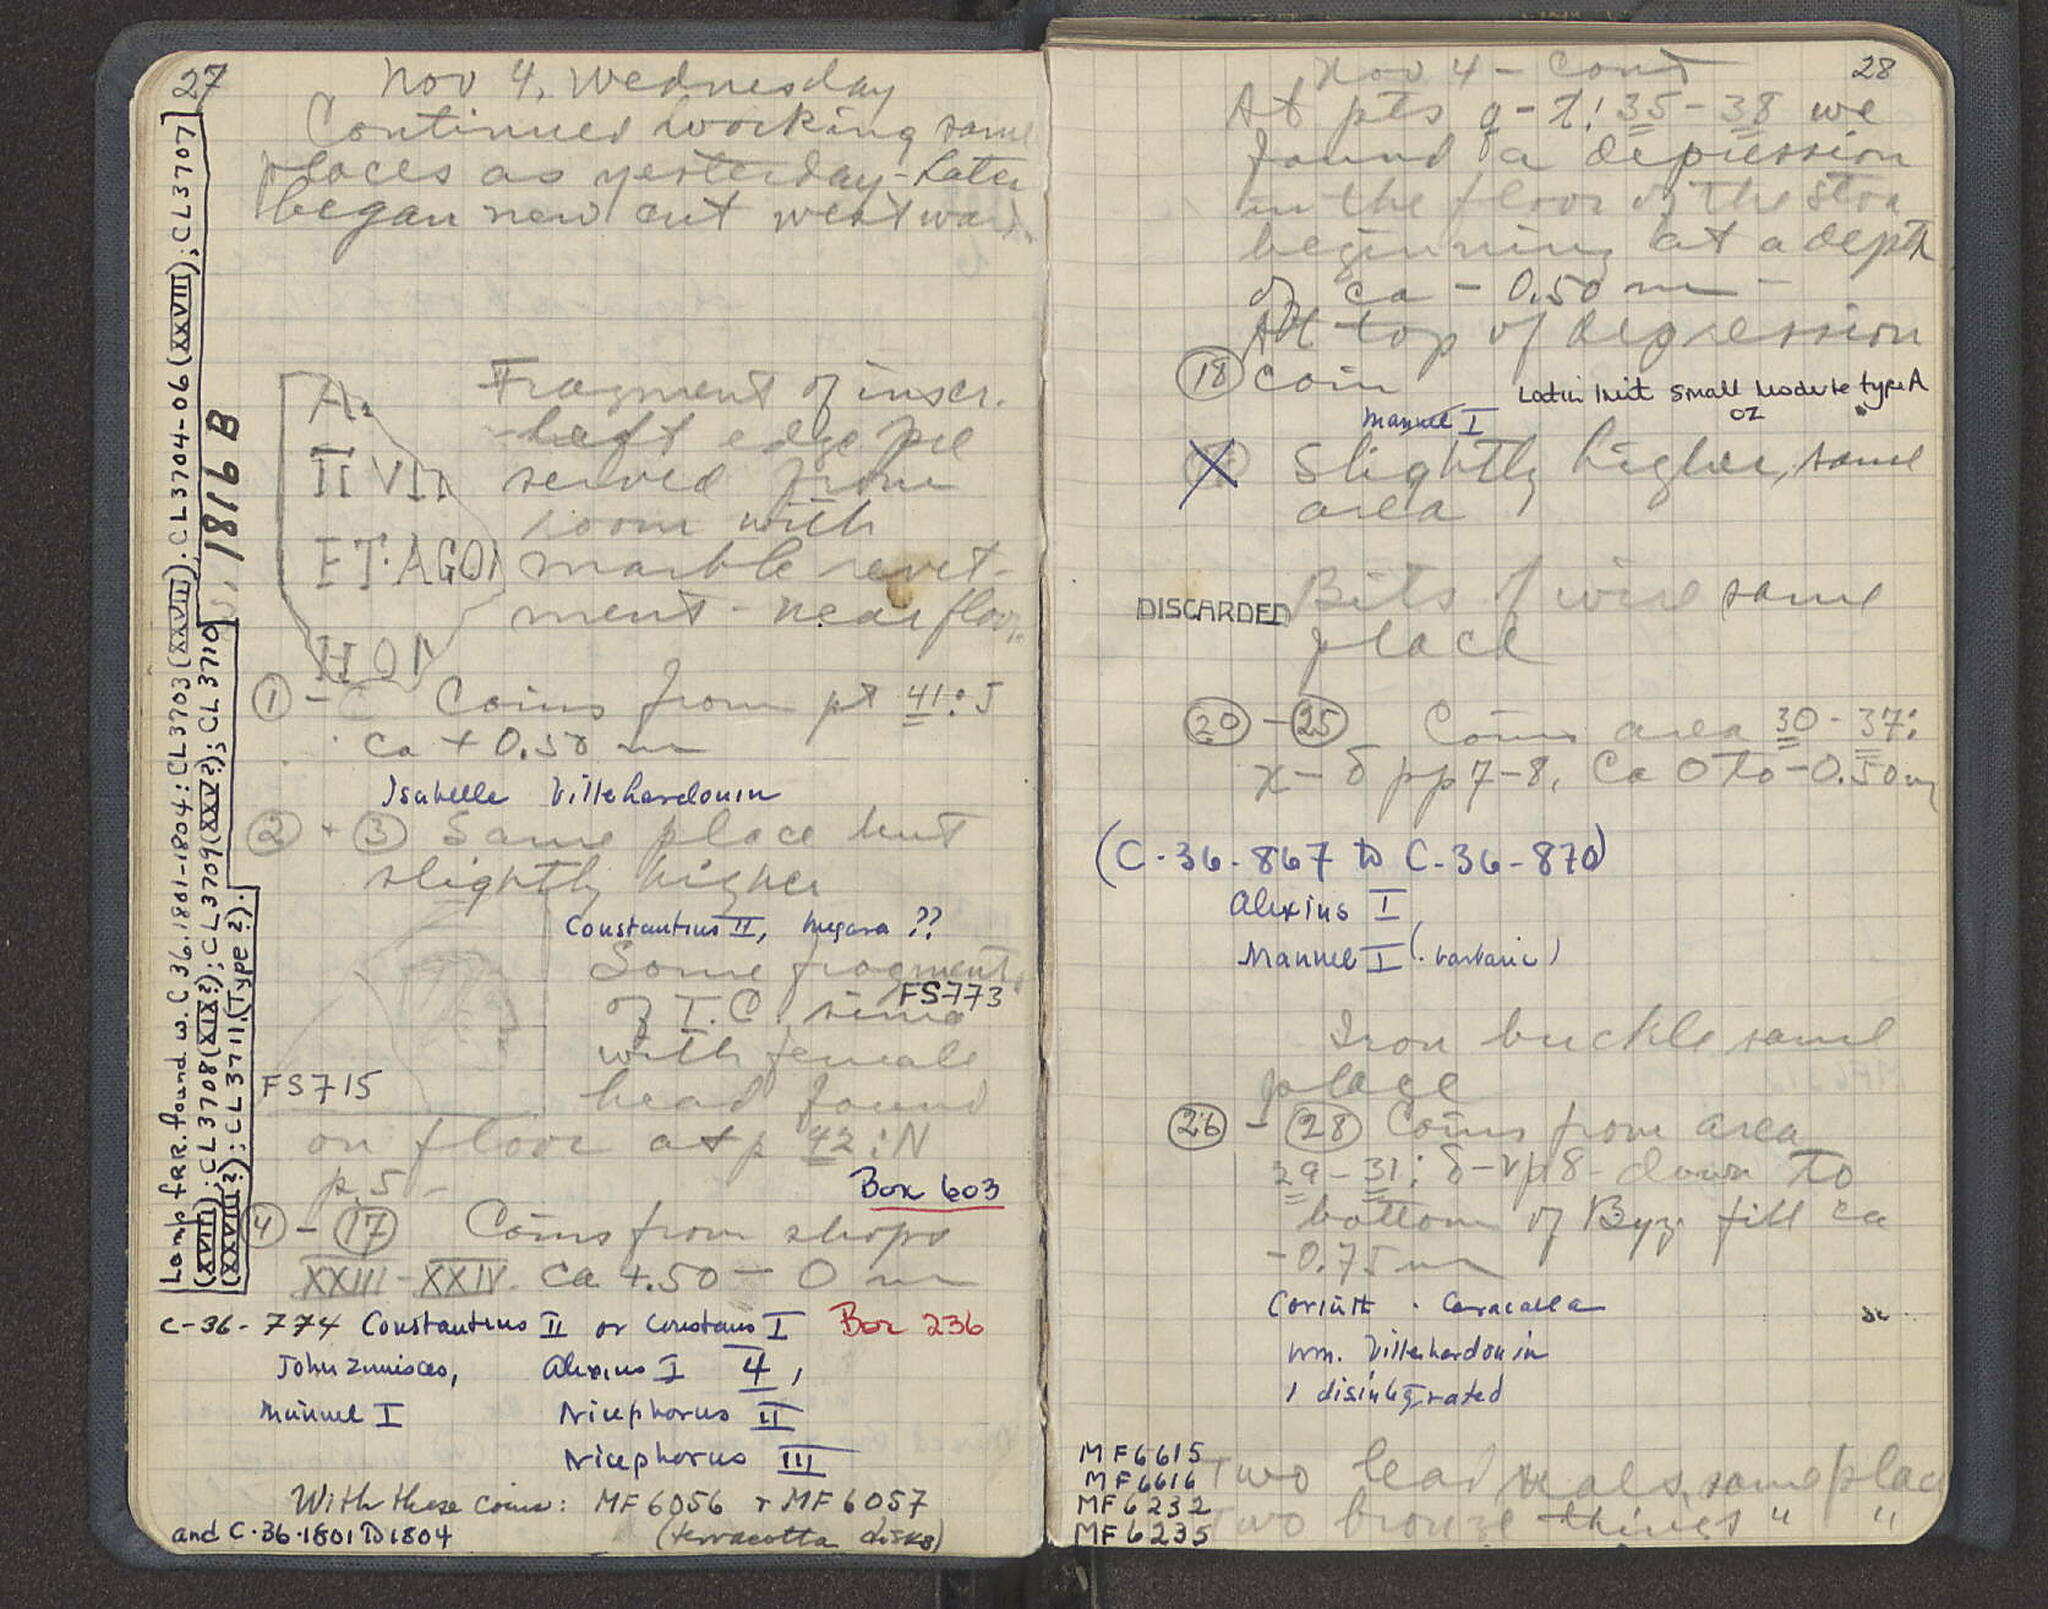 27
Nov 4, Wednesday
Continued working same
places as yesterday - Later
began new cut westward
A.
II VII
ET·AGON
HON
Fragment of inscr.
- Left edge pre
served from
room with
marble revet-
ment - near floor
1816 B
① - Coins from pt 41:J
Ca + 0.50 m
Isabelle Villehardouin
② + ③ Same place but
slightly higher
Constantius II, Megara ??
Some fragments
of T.C. sima
FS773
with female
head found
FS715
on floor at p 42:N
p. 5 -
Box 603
④ - ⑰ Coins from shops
XXIII - XXIV. Ca +.50 - 0 m
C-36-774 Constantius II or Constans I Box 236
John Zimisces, Alexius I 4,
Manuel I Nicephorus II
Nicephorus III
With these coins: MF6056 + MF6057
and C·36·1801 to 1804 (terracotta disks)
Lamp frr. found w. C.36.1801-1804: CL3703 (XXVII); CL3704-06 (XXVIII); CL3707
(XVIII); CL3708 (XIX?); CL3709 (XXV?); CL3710
(XXVIII?); CL3711 (Type ?).
28
Nov 4 - Cont
At pts q-t: 35-38 we
found a depression
in the floor of the Stoa
beginning at a depth
of ca - 0.50 m -
At top of depression
⑱ coin
Latin Imit small module type A
02
Manuel I
Slightly higher, same
area
DISCARDED Bits of wire same
place
⑳ - ㉕ Coins area 30-37:
x - δ pp 7-8, Ca 0 to -0.50 m
(C-36-867 to C-36-870)
Alexius I
Manuel I (barbaric)
Iron buckle same
place
㉖ - ㉘ Coins from area
29-31: δ-v p8 - down to
bottom of Byz. fill ca
-0.75 m
Corinth . Caracalla
Wm. Villehardouin
1 disintegrated
MF6615
MF6616
MF6232
MF6235
Two lead seals, same place
Two bronze things " "